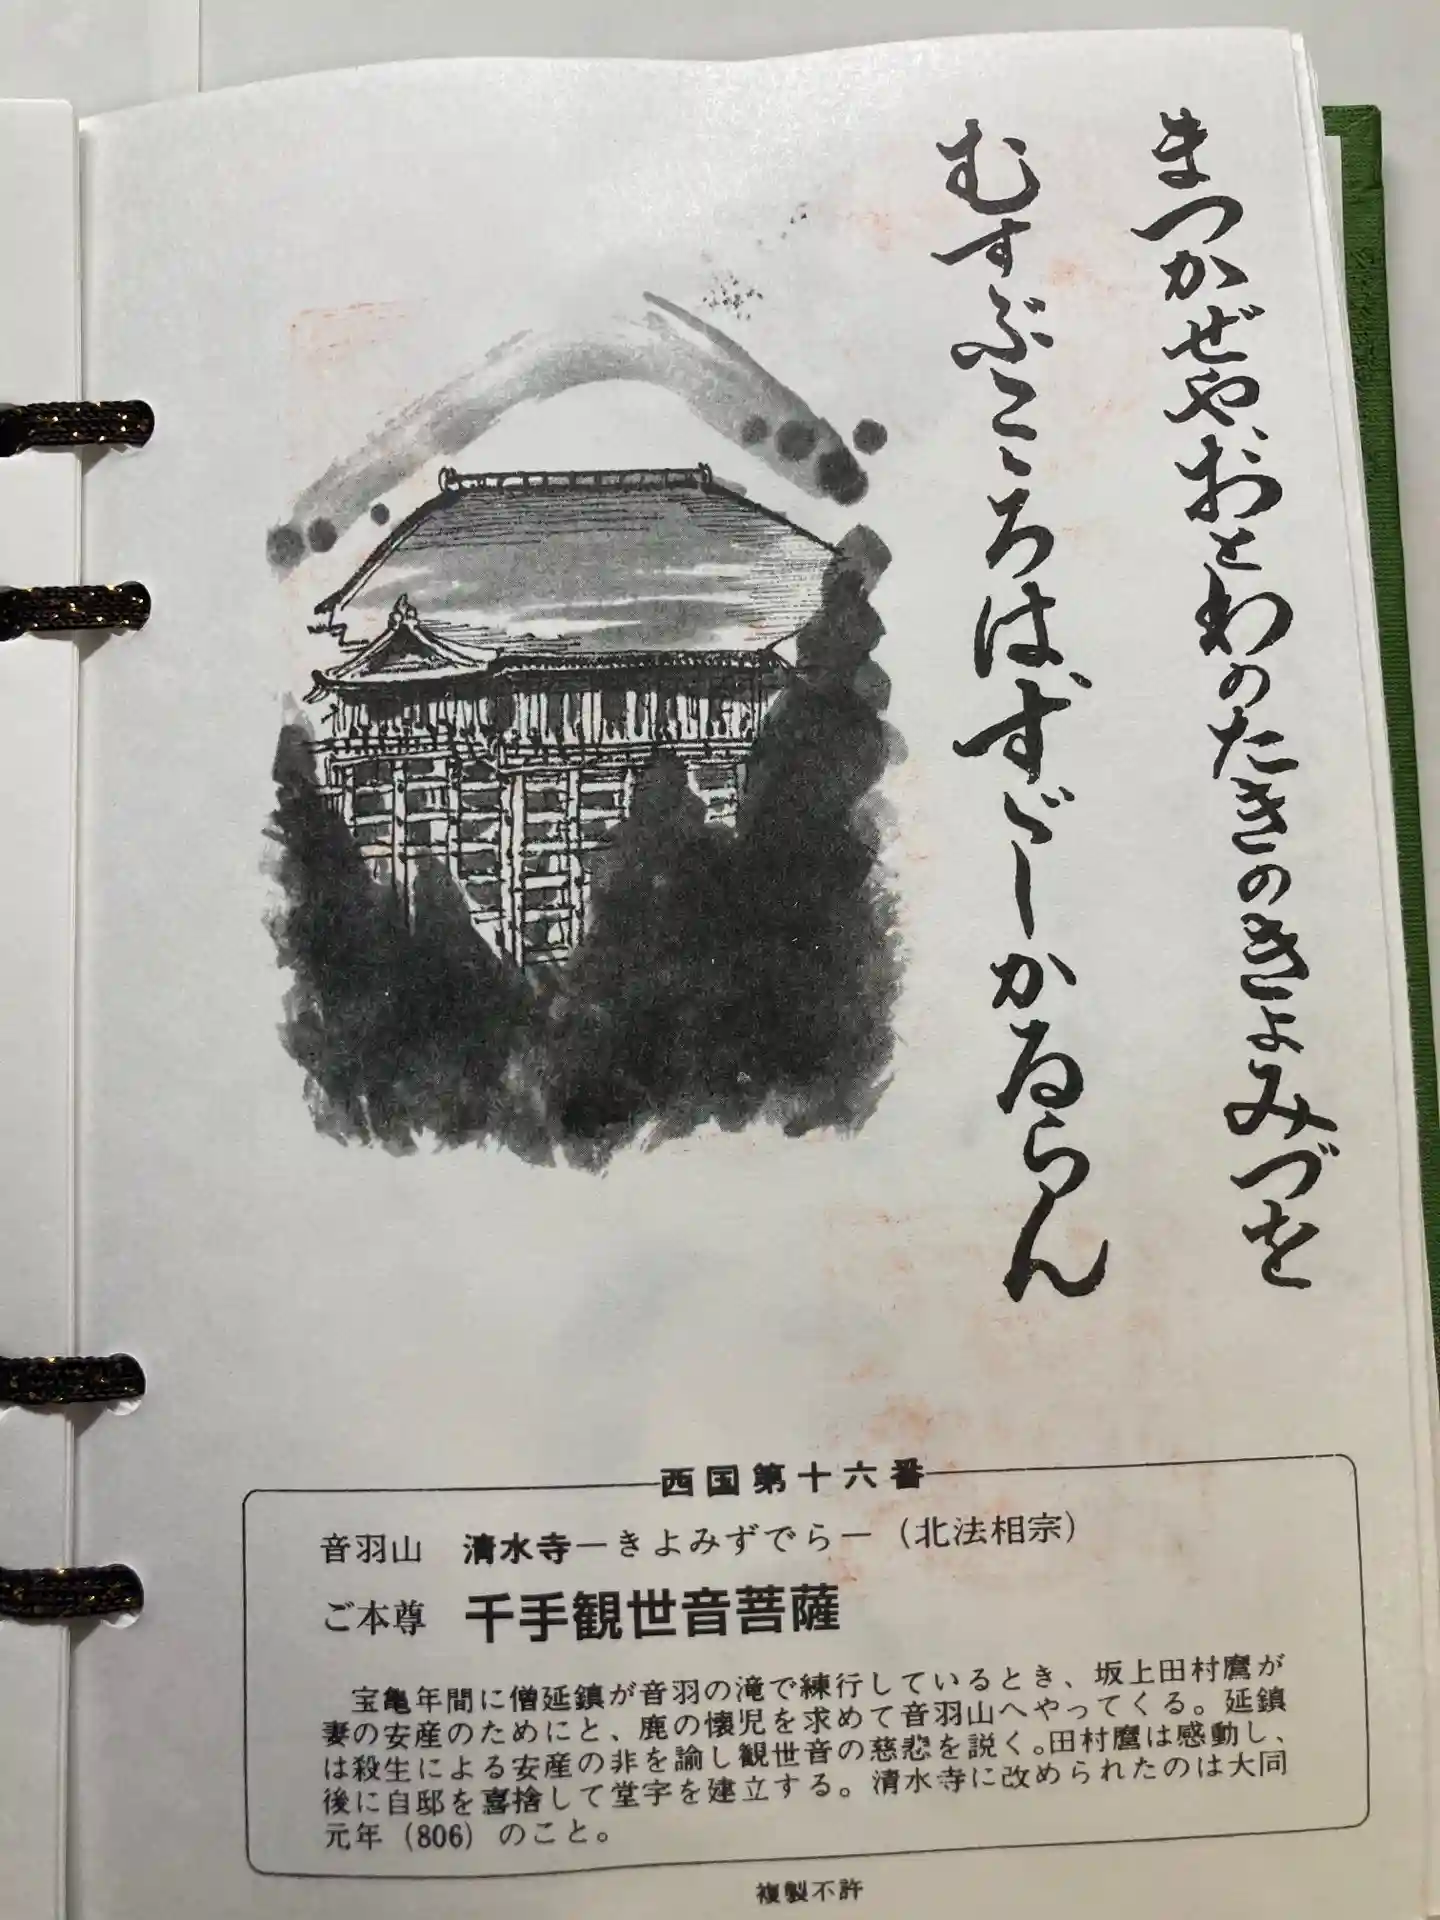 まつかぜや、おとわのたきのきよみづを
むすぶこゝろはすゞしかるらん
西国第十六番
音羽山 清水寺―きよみずでら―（北法相宗）
ご本尊 千手観世音菩薩
宝亀年間に僧延鎮が音羽の滝で練行しているとき、坂上田村麿が
妻の安産のためにと、鹿の懐児を求めて音羽山へやってくる。延鎮
は殺生による安産の非を諭し観世音の慈悲を説く。田村麿は感動し、
後に自邸を喜捨して堂宇を建立する。清水寺に改められたのは大同
元年（806）のこと。
複製不許